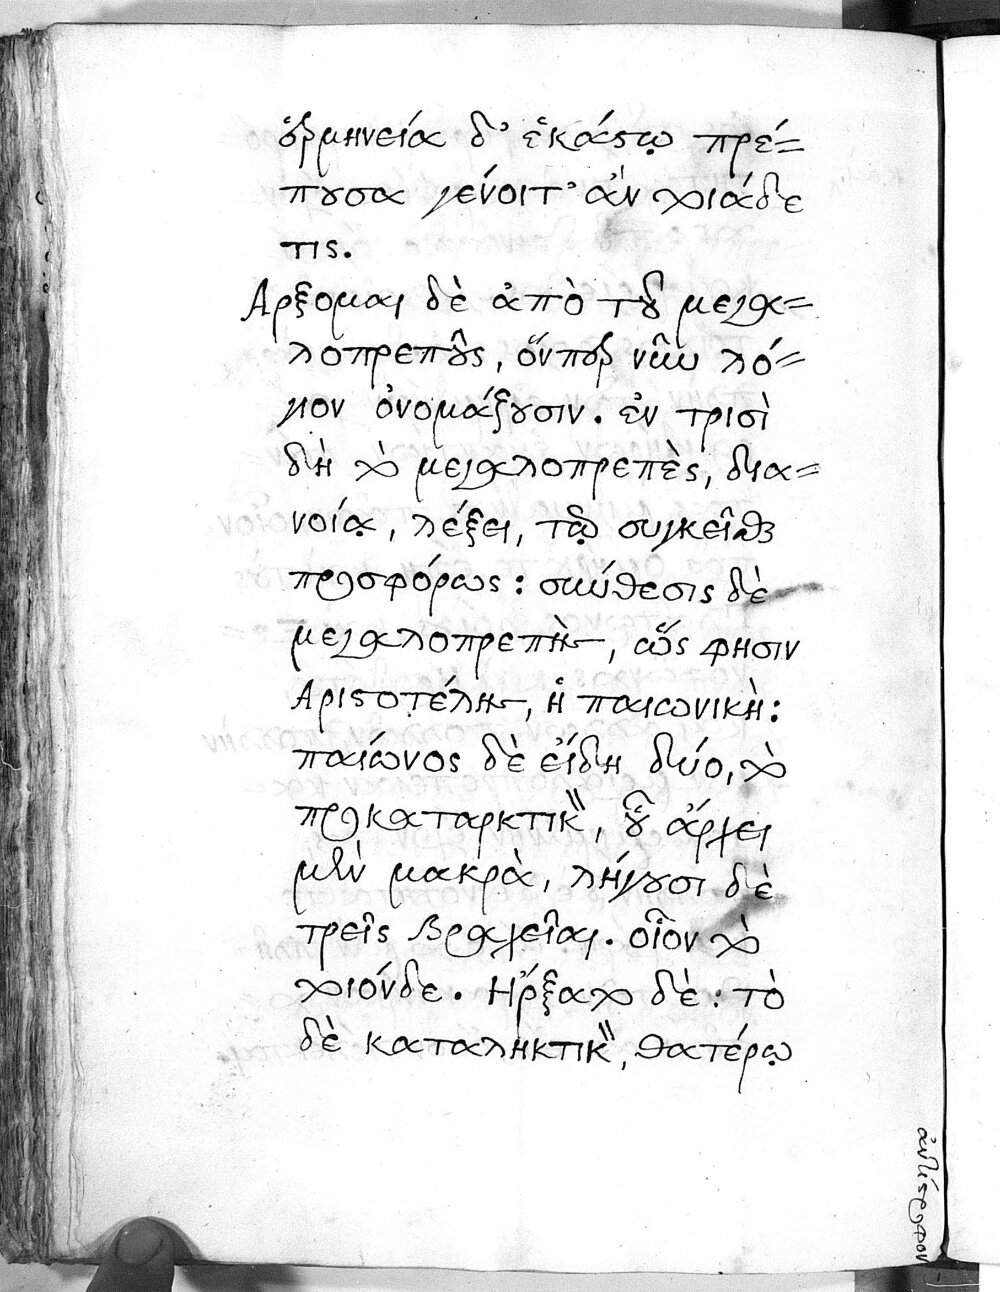 ἑρμηνεία δ' ἑκάστῳ πρέ=
πουσα γένοιτ' ἂν τοιάδε
τις.
Αρξομαι δὲ ἀπὸ τοῦ μεγα=
λοπρεποῦς, ὅνπερ νῦν λό=
γιον ὀνομάξουσιν. ἐν τρισὶ
δὴ τὸ μεγαλοπρεπὲς, δια=
νοίᾳ, λέξει, τῷ συγκεῖσθαι
προσφόρως: σύνθεσις δὲ
μεγαλοπρεπὴς, ὥς φησιν
Αριστοτέλης, ἡ παιωνικὴ:
παίωνος δὲ εἴδη δύο, τὸ
προκαταρκτικὸν, οὗ ἄρχει
μὲν μακρὰ, λήγουσι δὲ
τρεῖς βραχεῖαι. οἷον τὸ
τοιόνδε. Ηρξατο δὲ: τὸ
δὲ καταληκτικὸν, θατέρῳ
ἀντίστροφον